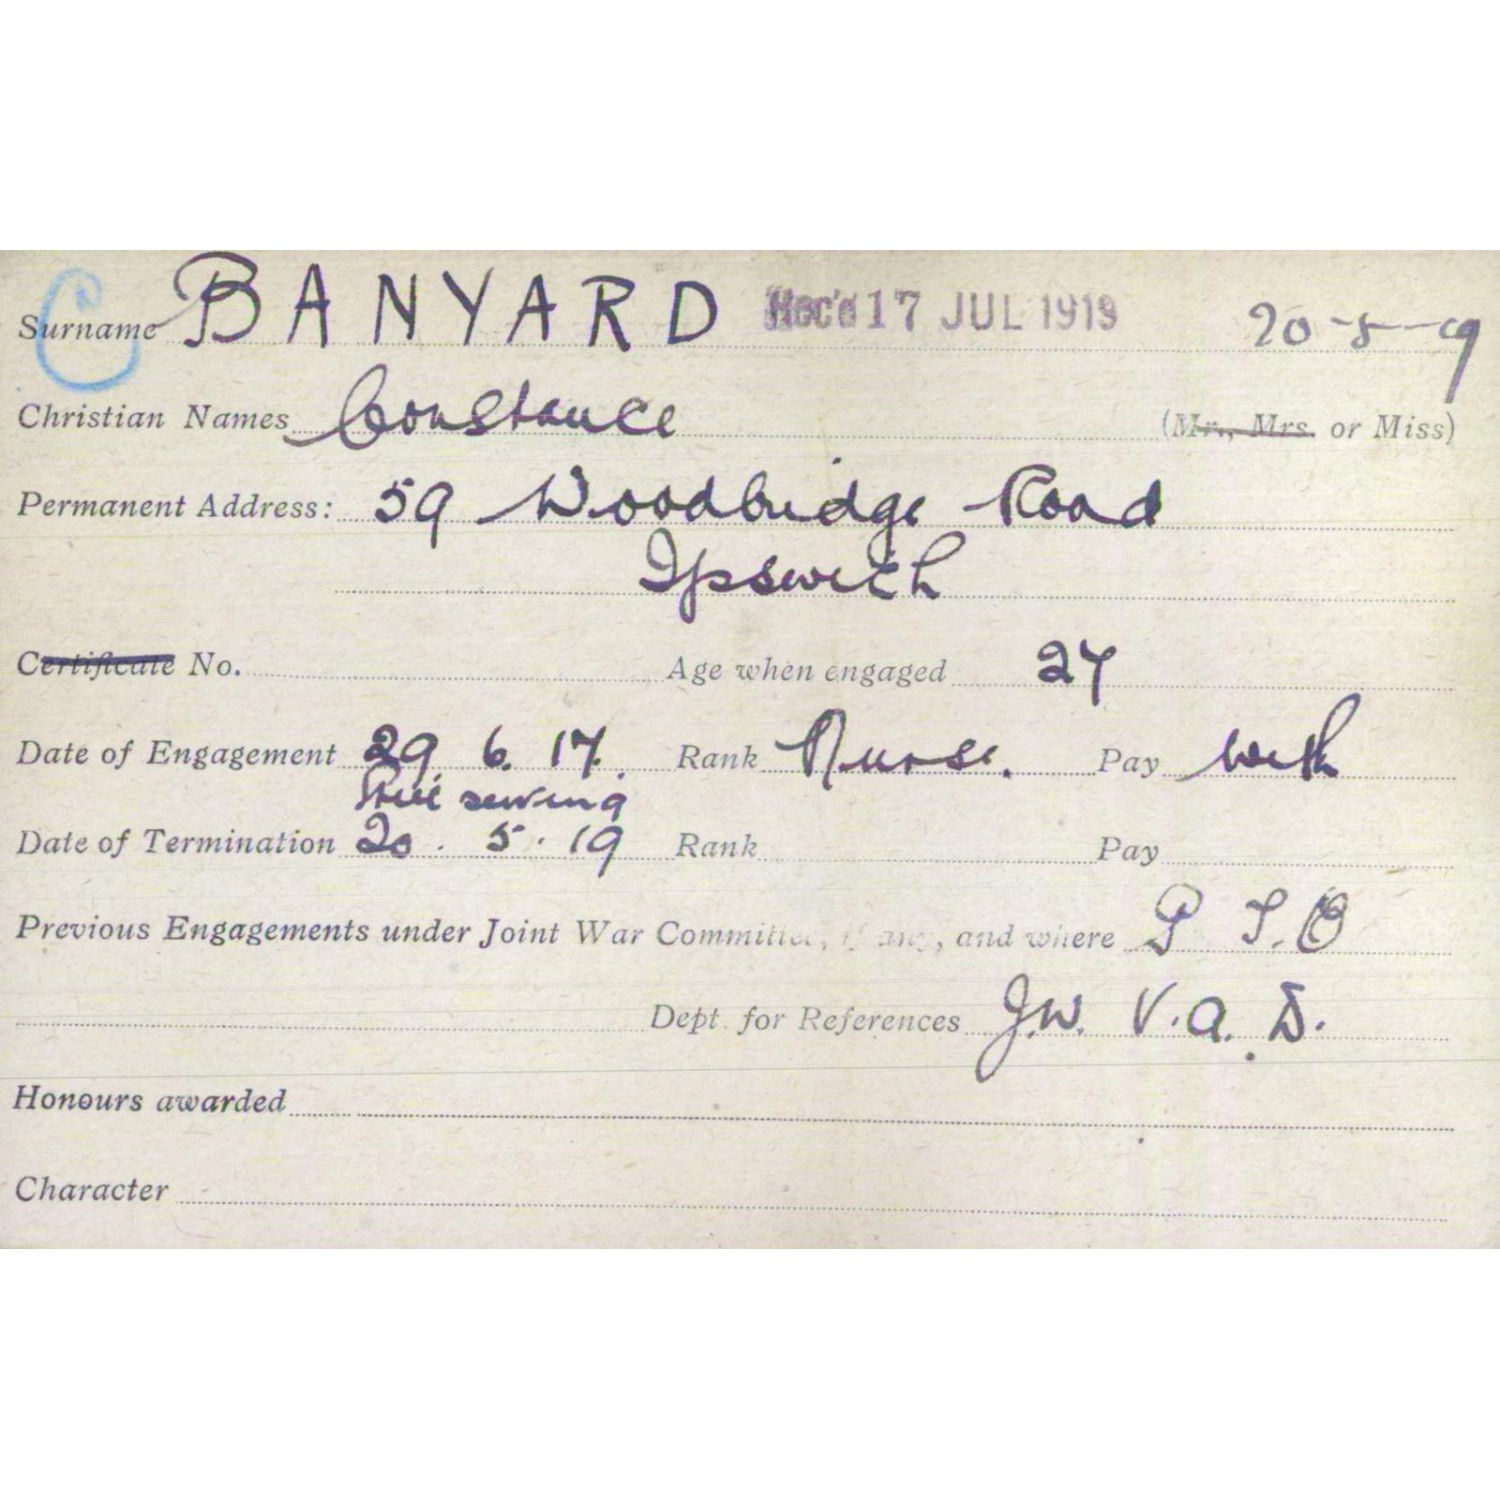 C
Surname BANYARD Rec'd 17 JUL 1919 20-5-19
Christian Names Constance (Mr., Mrs. or Miss)
Permanent Address: 59 Woodbridge Road
Ipswich
Certificate No. Age when engaged 27
Date of Engagement 29. 6. 17. Rank Nurse. Pay with
Still serving
Date of Termination 20. 5. 19 Rank Pay
Previous Engagements under Joint War Committee, if any, and where P.T.O
Dept. for References J.W. V.A.D.
Honours awarded
Character